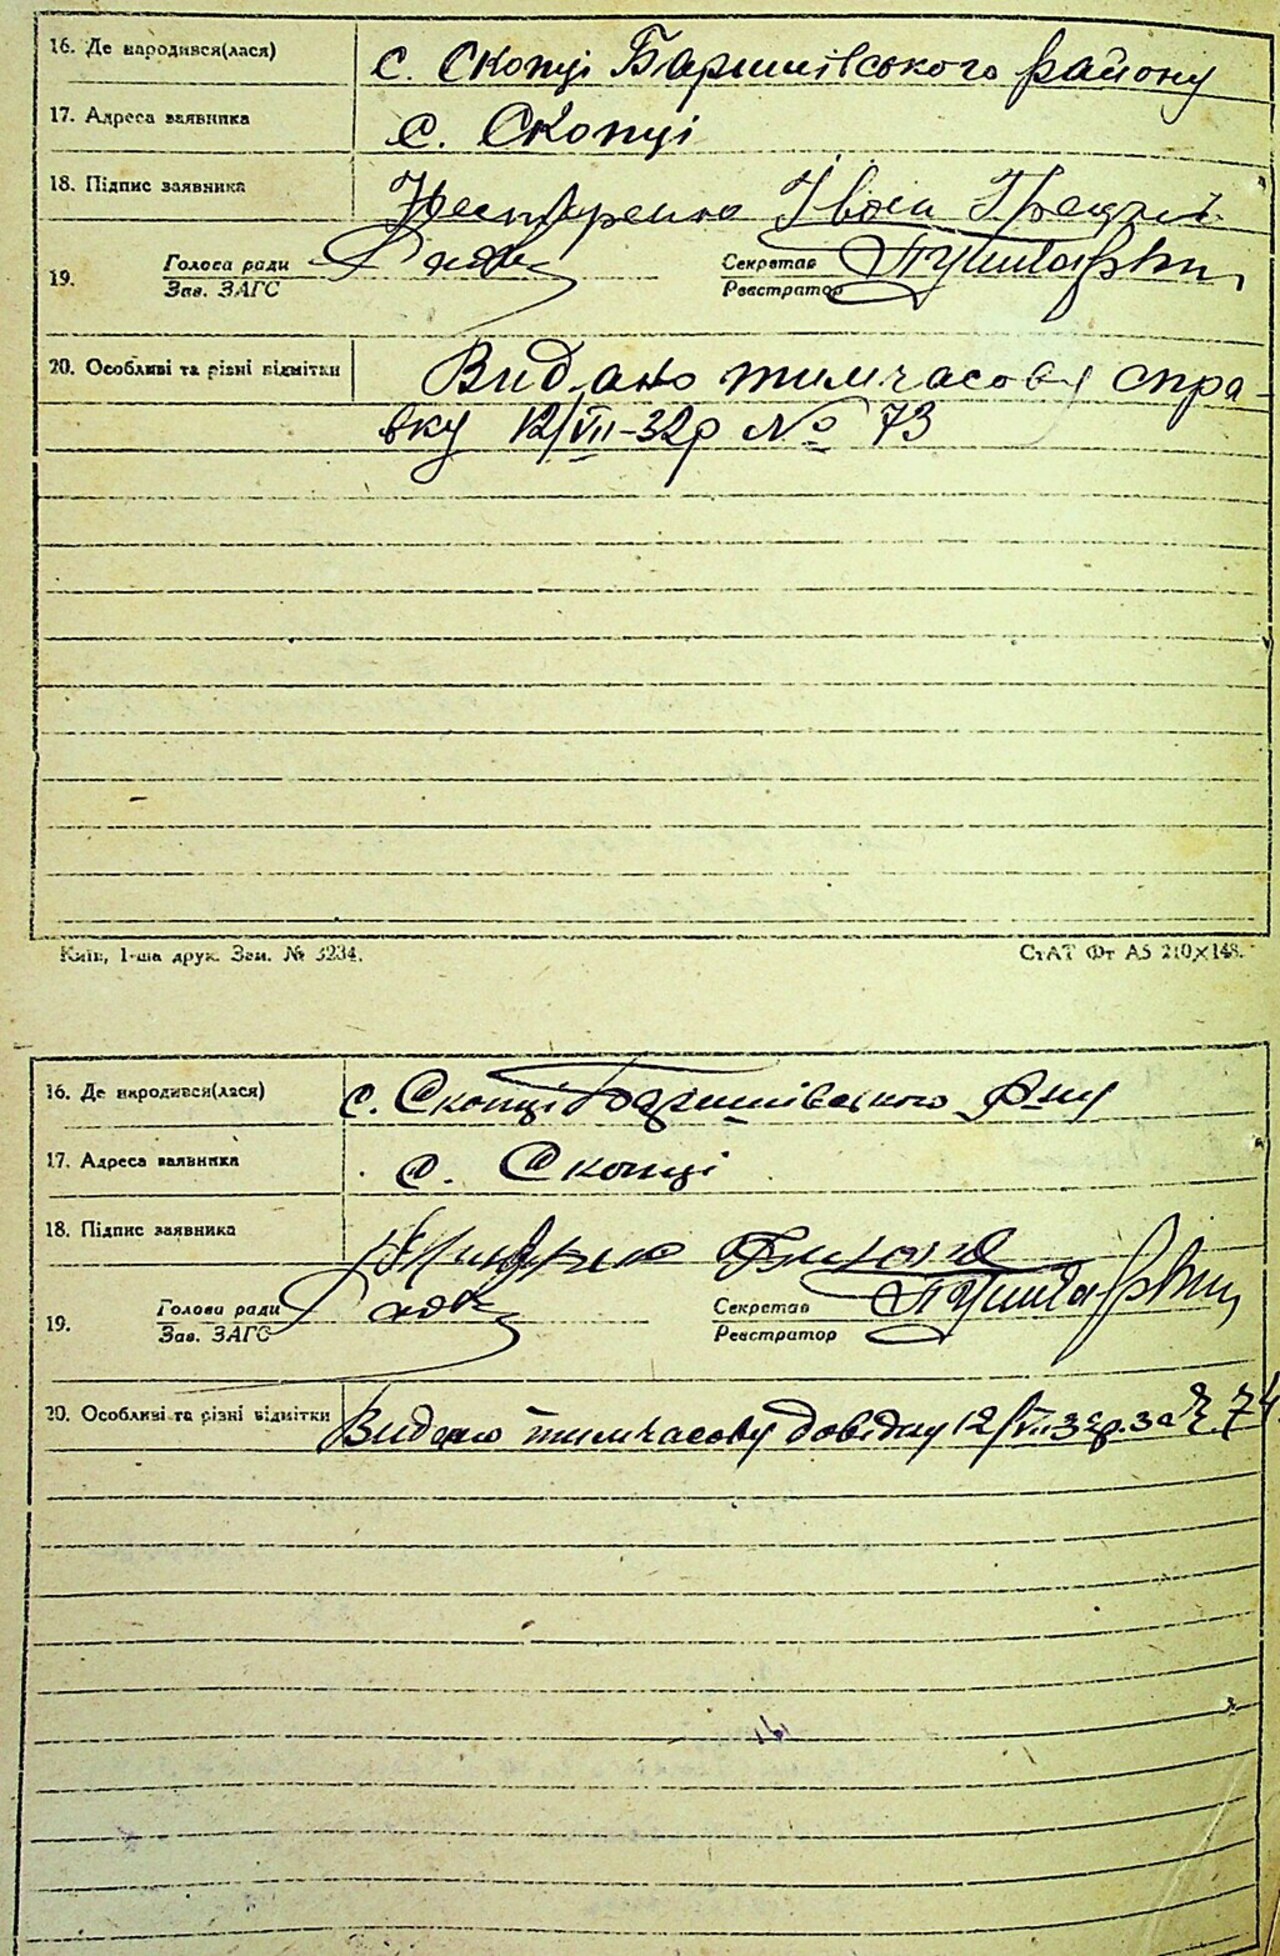 16. Де народився(лася) с. Скопці Баришівського району
17. Адреса заявника с. Скопці
18. Підпис заявника Нестеренко Іван
19. Голова ради Секретар
Зав. ЗАГС Реєстратор
20. Особливі та різні відмітки Видано тимчасову спра-
вку 12/VII-32р № 73
Київ, 1-ша друк. Зам. № 3234. СтАТ Фт А5 210×148.
16. Де народився(лася) с. Скопці Баришівського р-ну
17. Адреса заявника с. Скопці
18. Підпис заявника
19. Голова ради Секретар
Зав. ЗАГС Реєстратор
20. Особливі та різні відмітки Видано тимчасову довідку 12/VII 32р. за Ч. 74.